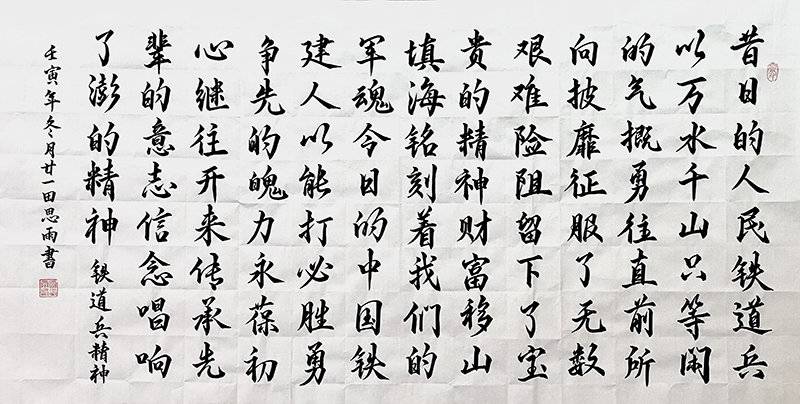 昔日的人民铁道兵
以万水千山只等闲
的气概勇往直前所
向披靡征服了无数
艰难险阻留下了宝
贵的精神财富移山
填海铭刻着我们的
军魂今日的中国铁
建人以能打必胜勇
争先的魄力永葆初
心继往开来传承先
辈的意志信念唱响
了澎的精神
铁道兵精神
壬寅年冬月廿一田思雨書